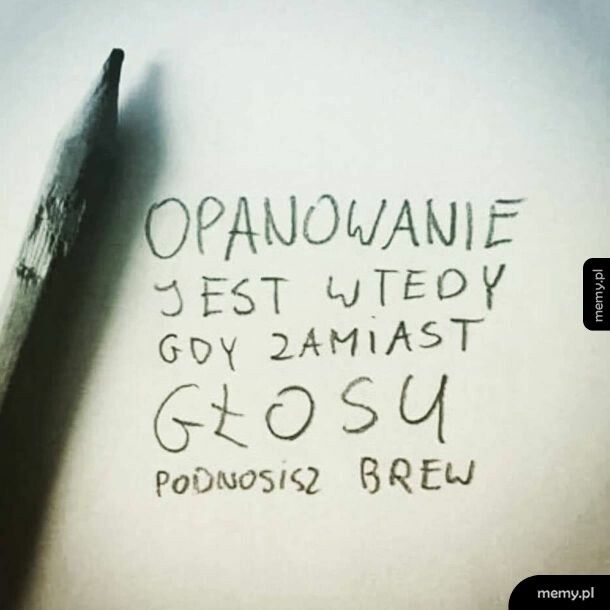 OPANOWANIE
JEST WTEDY
GDY ZAMIAST
GŁOSU
PODNOSISZ BREW
memy.pl
memy.pl